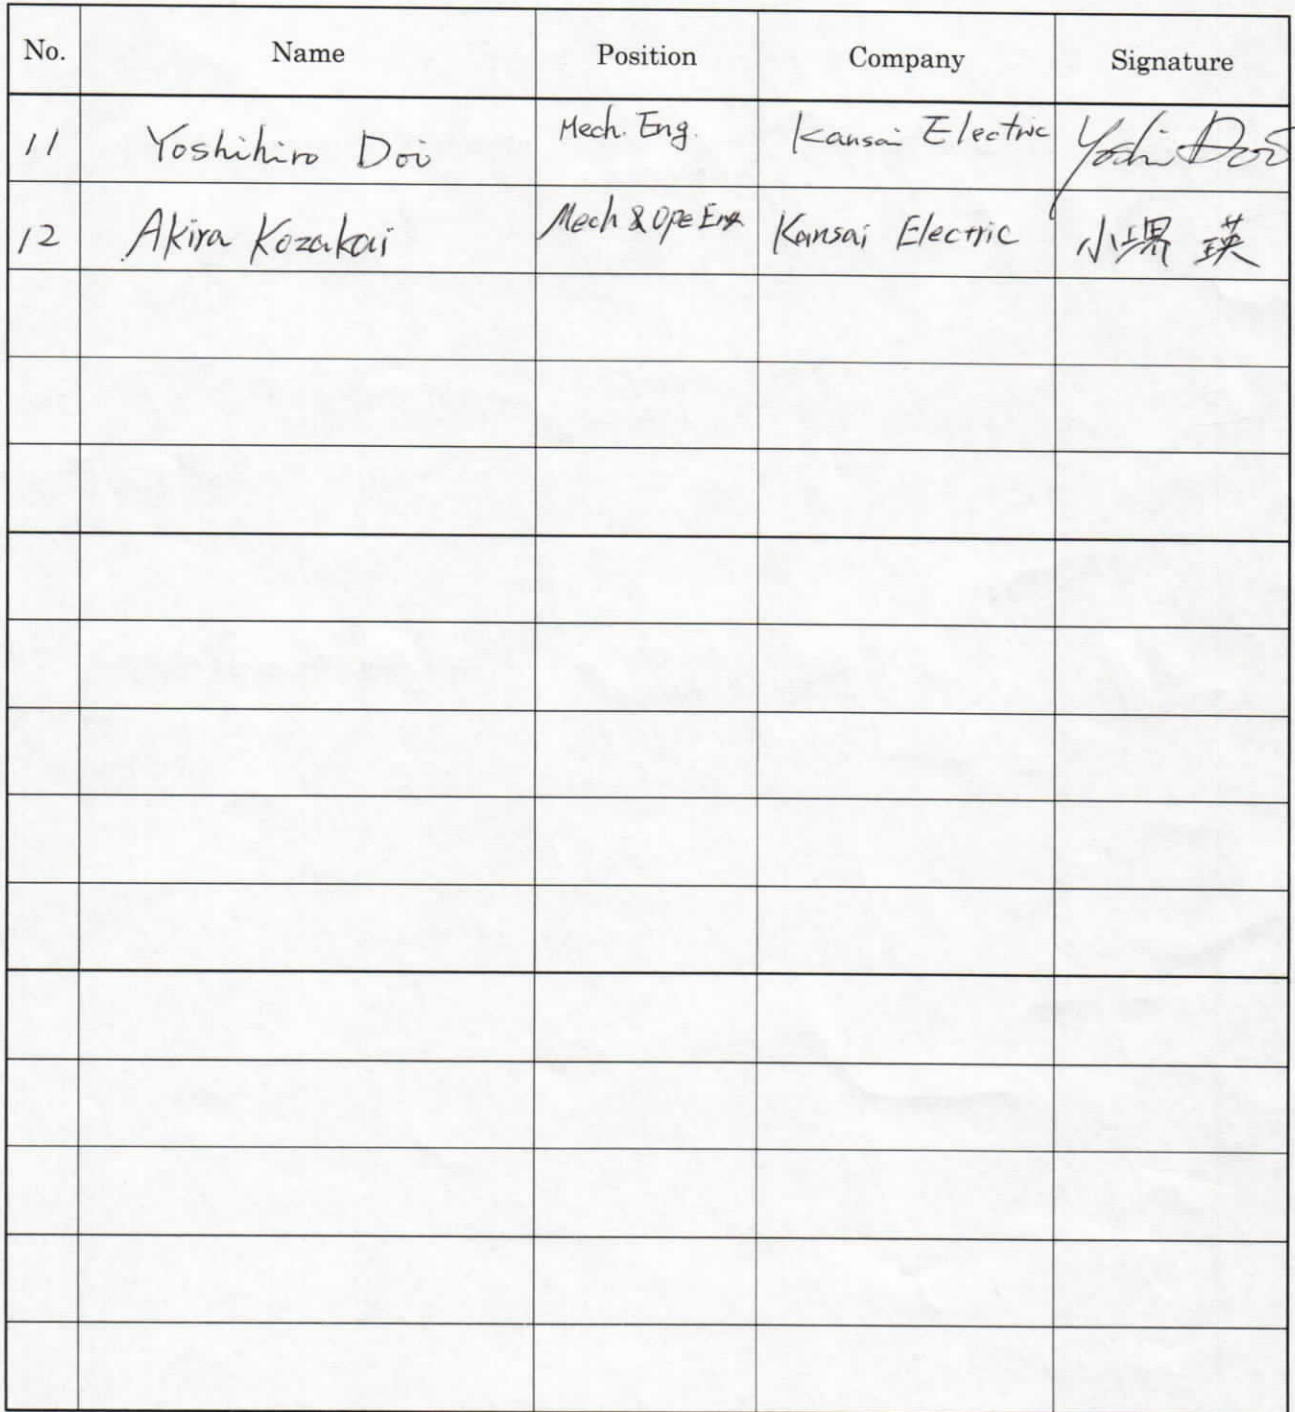 No. Name Position Company Signature
11 Yoshihiro Doi Mech. Eng. Kansai Electric Yoshi Doi
12 Akira Kozakai Mech & Ope Eng Kansai Electric 小堺 瑛